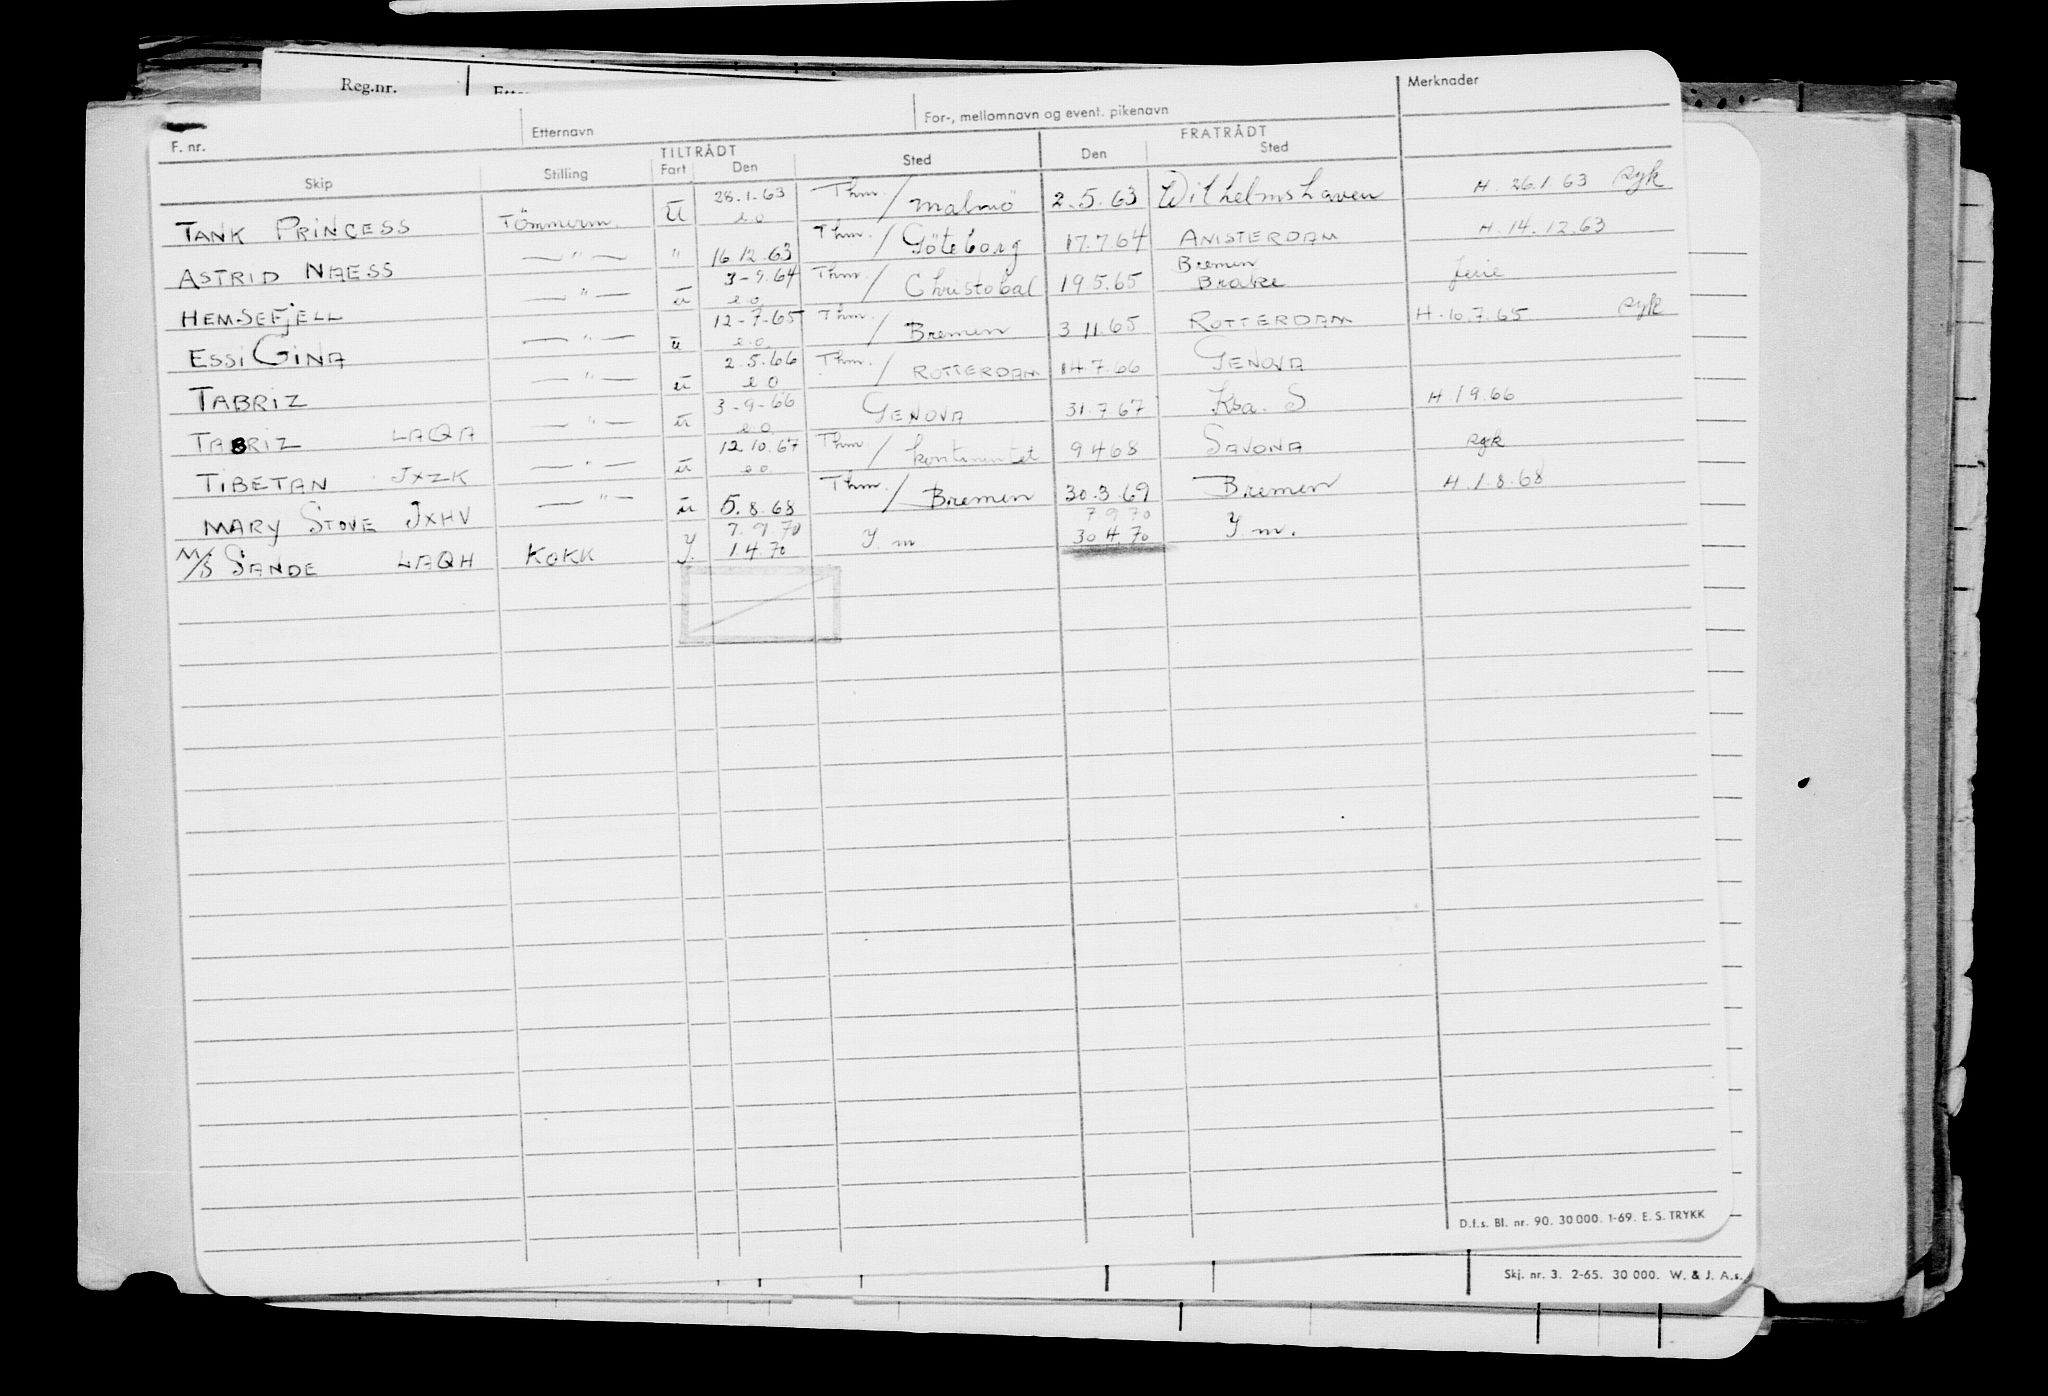 Reg.nr.
F. nr. Etternavn For-, mellomnavn og event. pikenavn Merknader
TILTRÅDT FRATRÅDT
Skip Stilling Fart Den Sted Den Sted
TANK PRINCESS Tömmerm. Ū 28.1.63 e.o Thm. / Malmö 2.5.63 Wilhelmshaven H. 26.1.63 syk
ASTRID NAESS — " — " 16.12.63 Thm. / Göteborg 17.7.64 AMSTERDAM H. 14.12.63
HEMSEFJELL — " — ū 3-9.64 e.o. Thm. / Christobal 19.5.65 Bremen Brake ferie
ESSI GINA — " — ū 12-7-65 e.o. Thm. / Bremen 3.11.65 ROTTERDAM H. 10.7.65 syk
TABRIZ — " — ū 2.5.66 e.o Thm. / ROTTERDAM 14.7.66 GENOVA
TABRIZ LAQA — " — ū 3-9-66 e.o. GENOVA 31.7.67 Ksa. S H 1.9.66
TIBETAN JXZK — " — ū 12.10.67 e.o. Thm. / kontinentet 9.4.68 SAVONA syk
MARY STOVE JXHV — " — ū 5.8.68 Thm. / Bremen 30.3.69 Bremen H. 1.8.68
M/S SANDE LAQH KOKK 7.9.70 7 9 70
y. 1.4.70 Y. m 30.4.70 Y. m.
D.f.s. Bl. nr. 90. 30 000. 1-69. E. S. TRYKK
Skj. nr. 3. 2-65. 30 000. W. & J. A.s.